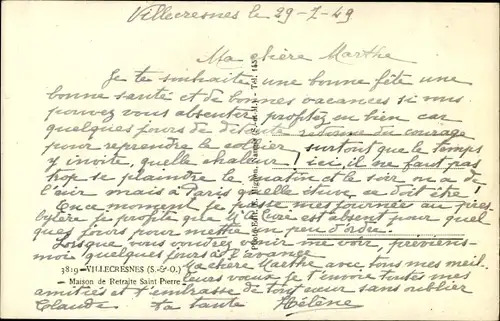 Villecresnes le 29-7-49
Ma chère Marthe
Je te souhaite une bonne fête une
bonne santé et de bonnes vacances si vous
pouvez vous absenter, profitez en bien car
quelques jours de détente redonne du courage
pour reprendre le collier surtout que le temps
y invite, quelle chaleur! ici, il ne faut pas
trop se plaindre le matin et le soir on a de
l'air mais à Paris quelle étuve ce doit être!
En ce moment je passe mes journées au pres
bytère je profite que Mr le Curé est absent pour quel
ques jours pour mettre un peu d'ordre.
Lorsque vous voudrez venir me voir, préviens-
moi quelques jours à l'avance
3819 - VILLECRESNES (S.-&-O.)
Maison de Retraite Saint Pierre
Ma chère Marthe avec tous mes meil
leurs vœux je t'envoie toutes mes
amitiés et t'embrasse de tout cœur sans oublier
Claude ta tante Hélène